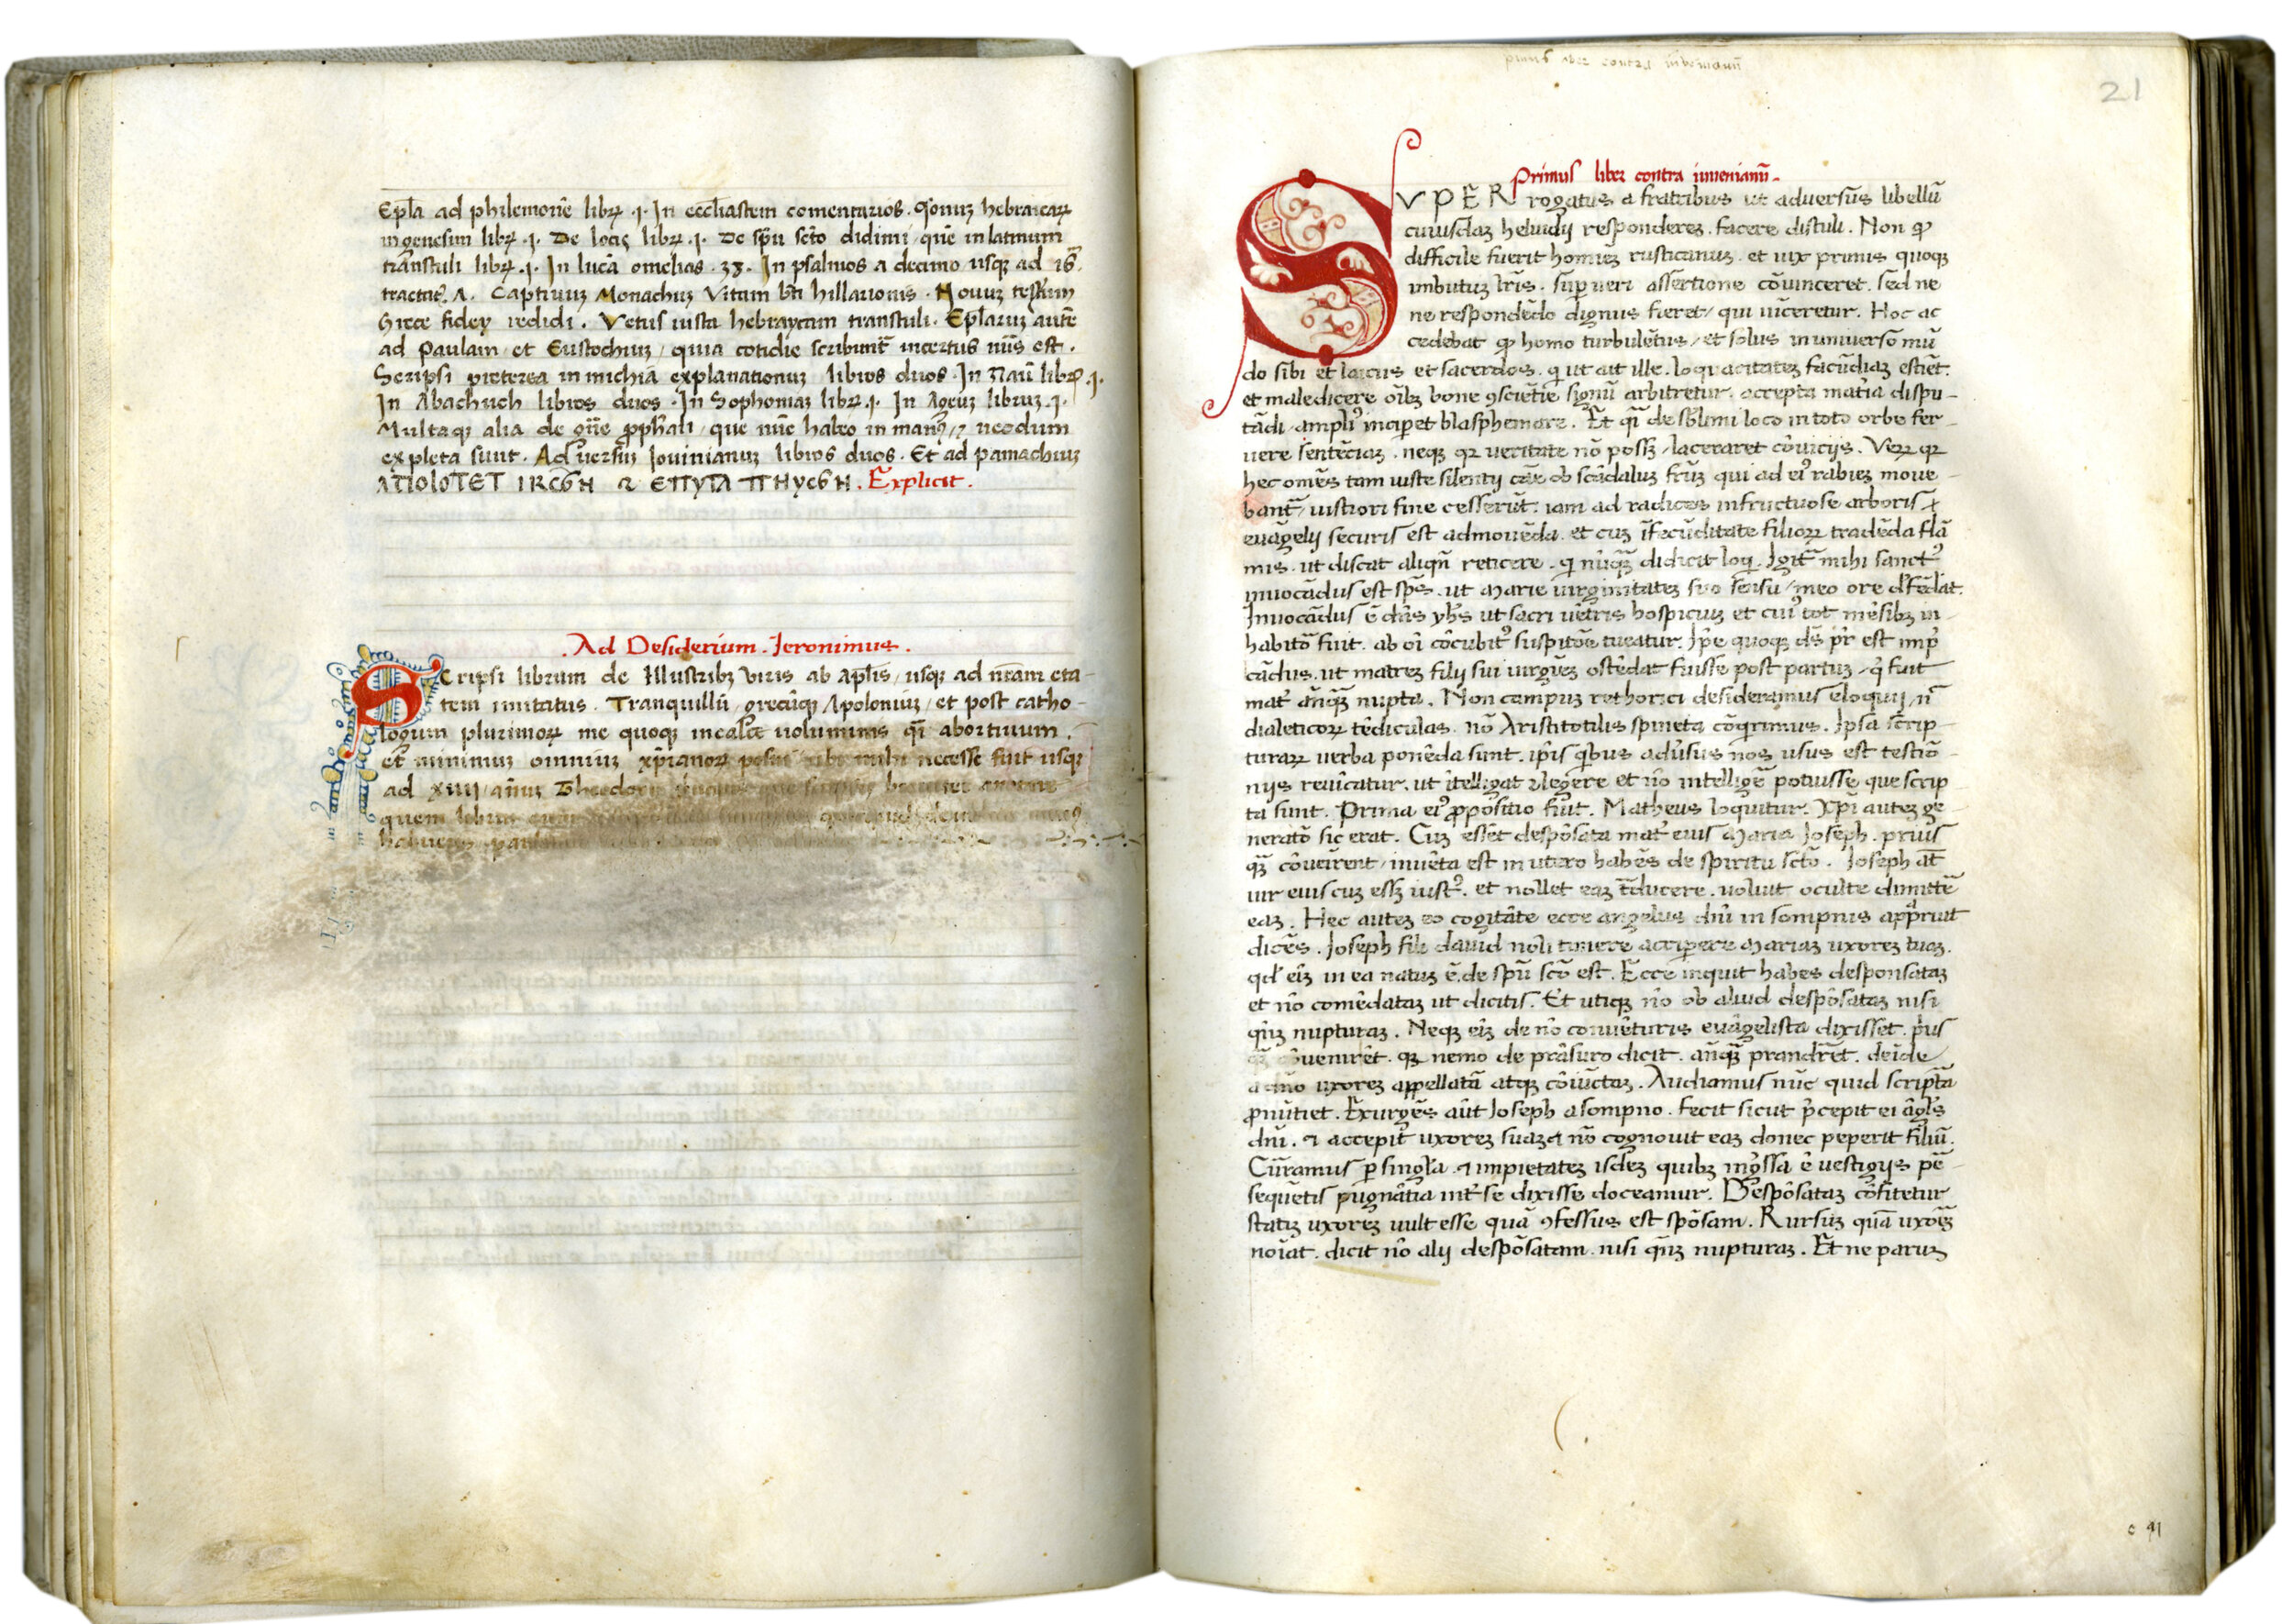 Epl̄a ad philemonē libꝝ .i. In eccl̄iastem comentarios. q̄onuʒ hebraicaꝝ
in genesim libꝝ .i. De locis libꝝ .i. De sp̄u sct̄o didimi que in latinum
transtuli libꝝ .i. In lucā omelias .38. In psalmos a decimo usqʒ ad 16.
tractat⁹ .Λ. Captiuuʒ Monachuʒ Vitam bt̄i hillarionis. Nouuʒ test̄m
Grece fidey redidi. Vetus iusta hebraycam transtuli. Epl̄aruʒ autē
ad Paulam et Eustochiuʒ / quia cotidie scribunt̄ incertus nūs est.
Scripsi preterea in michiā explanationuʒ libros duos. In Naū libꝝ .i.
In Abachuch libros duos. In Sophoniaʒ libꝝ .i. In Ageuʒ libruʒ .i.
Multaqʒ alia de ꝓph̄ali que nūc habeo in man⁹ / necdum
expleta sunt. Aduersuʒ Iouinianuʒ libros duos. Et ad pamachiuʒ
Explicit.
.Ad Desiderium. Ieronimus.
Scripsi librum de Illustribʒ viris ab ap̄lis / usqʒ ad nr̄am eta-
tem imitatus. Tranquillū / grecūqʒ Apoloniuʒ / et post catho-
logum plurimoꝝ me quoqʒ in calce uoluminis q̄i abortiuum.
et minimuʒ omniuʒ xp̄ianoꝝ posui mihi necesse fuit usqʒ
ad xiiij annuʒ Theodosii
quem librum
primus liber contra iuuenianū
21
Primus liber contra iuuenianū.
SVPER rogatus a fratribus ut aduersus libellū
cuiusdaʒ heluidij respondereʒ. facere distuli. Non ꝙ
difficile fuerit homineʒ rusticanuʒ. et uix primis quoqʒ
imbutuʒ lr̄is. suꝑ ueri assertione cōuinceret. sed ne
ne respondēdo dignus fieret / qui uiceretur. Hoc ac
cedebat ꝙ homo turbulētus / et solus in uniuerso mū
do sibi et laicus et sacerdos. q̄ ut ait ille. loquacitateʒ facūdiaʒ estiēt.
et maledicere oībʒ bone ꝯscietie signū arbitretur. accepta mat̄ia dispu-
tādi / ampli⁹ inciꝑet blasphemare. Et q̄i de sblimi loco in toto orbe fer-
uere sentēciaʒ. neqʒ qꝛ ueritate nō posʒ / laceraret cōuicijs. Veꝝ qꝛ
hec omēs tam iuste silentij caē ob scādalus fr̄uʒ qui ad ei⁹ rabieʒ moue-
bant̄ / iustiori fine cesserūt. iam ad radices infructuose arboris
euāgelij securis est admouēda. et cuʒ ifecūditate filioꝝ tradēda flā
mis. ut discat aliqn̄ reticere. q̄ nūqʒ didicit loqi. Igit̄ mihi sanct⁹
inuocādus est sp̄s. ut Marie uirginitateʒ suo sensu / meo ore dfēdat.
Inuocādus ē dn̄s yh̄s ut sacri uētris hospiciuʒ et cui⁹ tot mēsibʒ in-
habitō fuit. ab oī cōcubit⁹ suspitōe tueatur. Ip̄e quoqʒ ds̄ pr̄ est imp̄
cādus. ut matreʒ filij sui uirgineʒ ostēdat fuisse post partuʒ q̄ fuit
mat̄ anqʒ nupta. Non campuʒ rethorici desideramus eloquij / n̄
dialeticoꝝ tēdiculas. nō Aristitotilis spineta cōqrimus. Ipsa scrip-
turaꝝ uerba ponēda sunt. ip̄is q̄bus adūsus nos usus est testiō-
nijs reuicatur. ut itelligat legere et nō intelligē potuisse que scrip
ta sunt. Prima ei⁹ ꝓpositio fūit. Matheus loquitur. Xp̄i auteʒ ge-
neratō sic erat. Cuʒ esset despōsata mat̄ eius Maria Ioseph. prius
qʒ cōuenirent / inuēta est in utero habēs de spiritu sctō. Ioseph at̄
uir eius cuʒ essʒ iust⁹. et nollet eaʒ t̄ducere. uoluit occulte dimitte
eaʒ. Hec auteʒ eo cogitāte ecce angelus dn̄i in sompnis apparuit
dicēs. Ioseph fili dauid noli timere acciꝑere Mariaʒ uxoreʒ tuaʒ.
qd̄ eīʒ in ea natuʒ ē. de spū sctō est. Ecce inquit habes desponsataʒ
et nō comēdataʒ ut dicitis. Et utiqʒ nō ob aliud despōsataʒ nisi
qn̄ʒ nupturaʒ. Neqʒ eīʒ de nō conuēturis euāgelista dixisset. pus
qʒ cōuenirēt. qʒ nemo de prāsuro dicit. anqʒ prandret. deīde
a dn̄o uxoreʒ appellatā atqʒ cōiuctaʒ. Audiamus nūc quid scriptā
ꝓnūtiet. Exurgēs aūt Ioseph a sompno. fecit sicut p̄cepit ei āgl̄s
dn̄i. ⁊ accepit uxoreʒ suaʒ ⁊ nō cognouit eaʒ donec peperit filiū.
Cūramus ꝑ singl̄a. ⁊ impietateʒ isdeʒ quibʒ ingssa ē uestigijs pē-
sequētis pugnātia int̄ se dixisse doceamur. Despōsataʒ cōfitetur
statiʒ uxoreʒ uult esse quā ꝯfessus est spōsam. Rursuʒ quā uxoreʒ
noiat. dicit nō alij despōsatam. nisi qn̄ʒ nupturaʒ. Et ne paruʒ